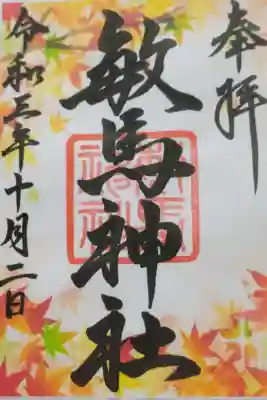 奉拝
敏馬神社
令和三年十月二日